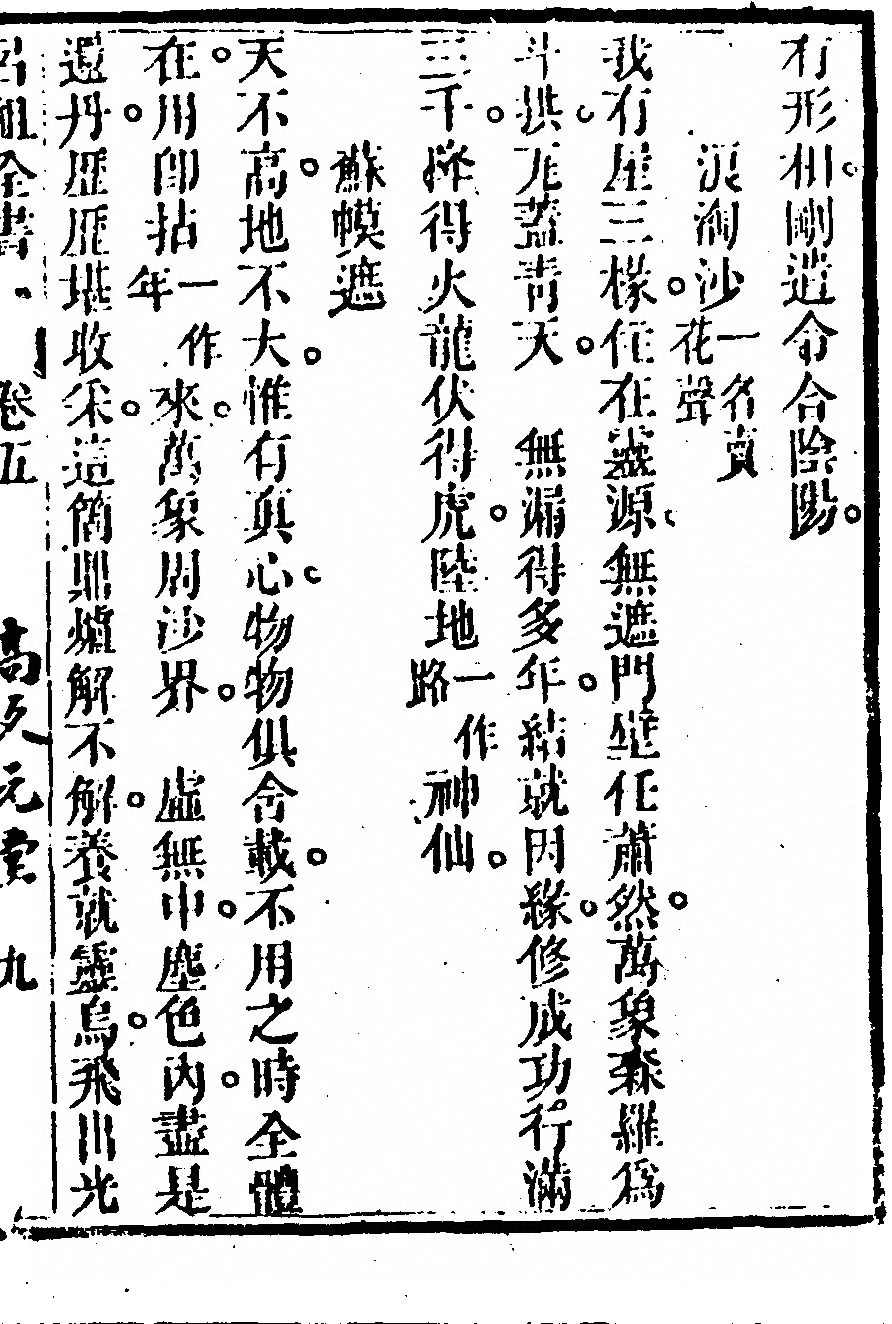 有形相。剛道命合陰陽。
浪淘沙一名賣花聲
我有屋三椽。住在靈源。無遮門壁任蕭然。萬象森羅爲
斗拱。瓦蓋青天。　無漏得多年。結就因緣。修成功行滿
三千。降得火龍伏得虎。陸地一作路神仙。
蘇幙遮
天不高。地不大。惟有眞心。物物俱含載。不用之時全體
在。用卽拈一作年來。萬象周沙界。　虛無中。塵色內。盡是
還丹。歷歷堪收采。這箇鼎爐解不解。養就靈烏。飛出光
呂祖全書　卷五　元堂　九